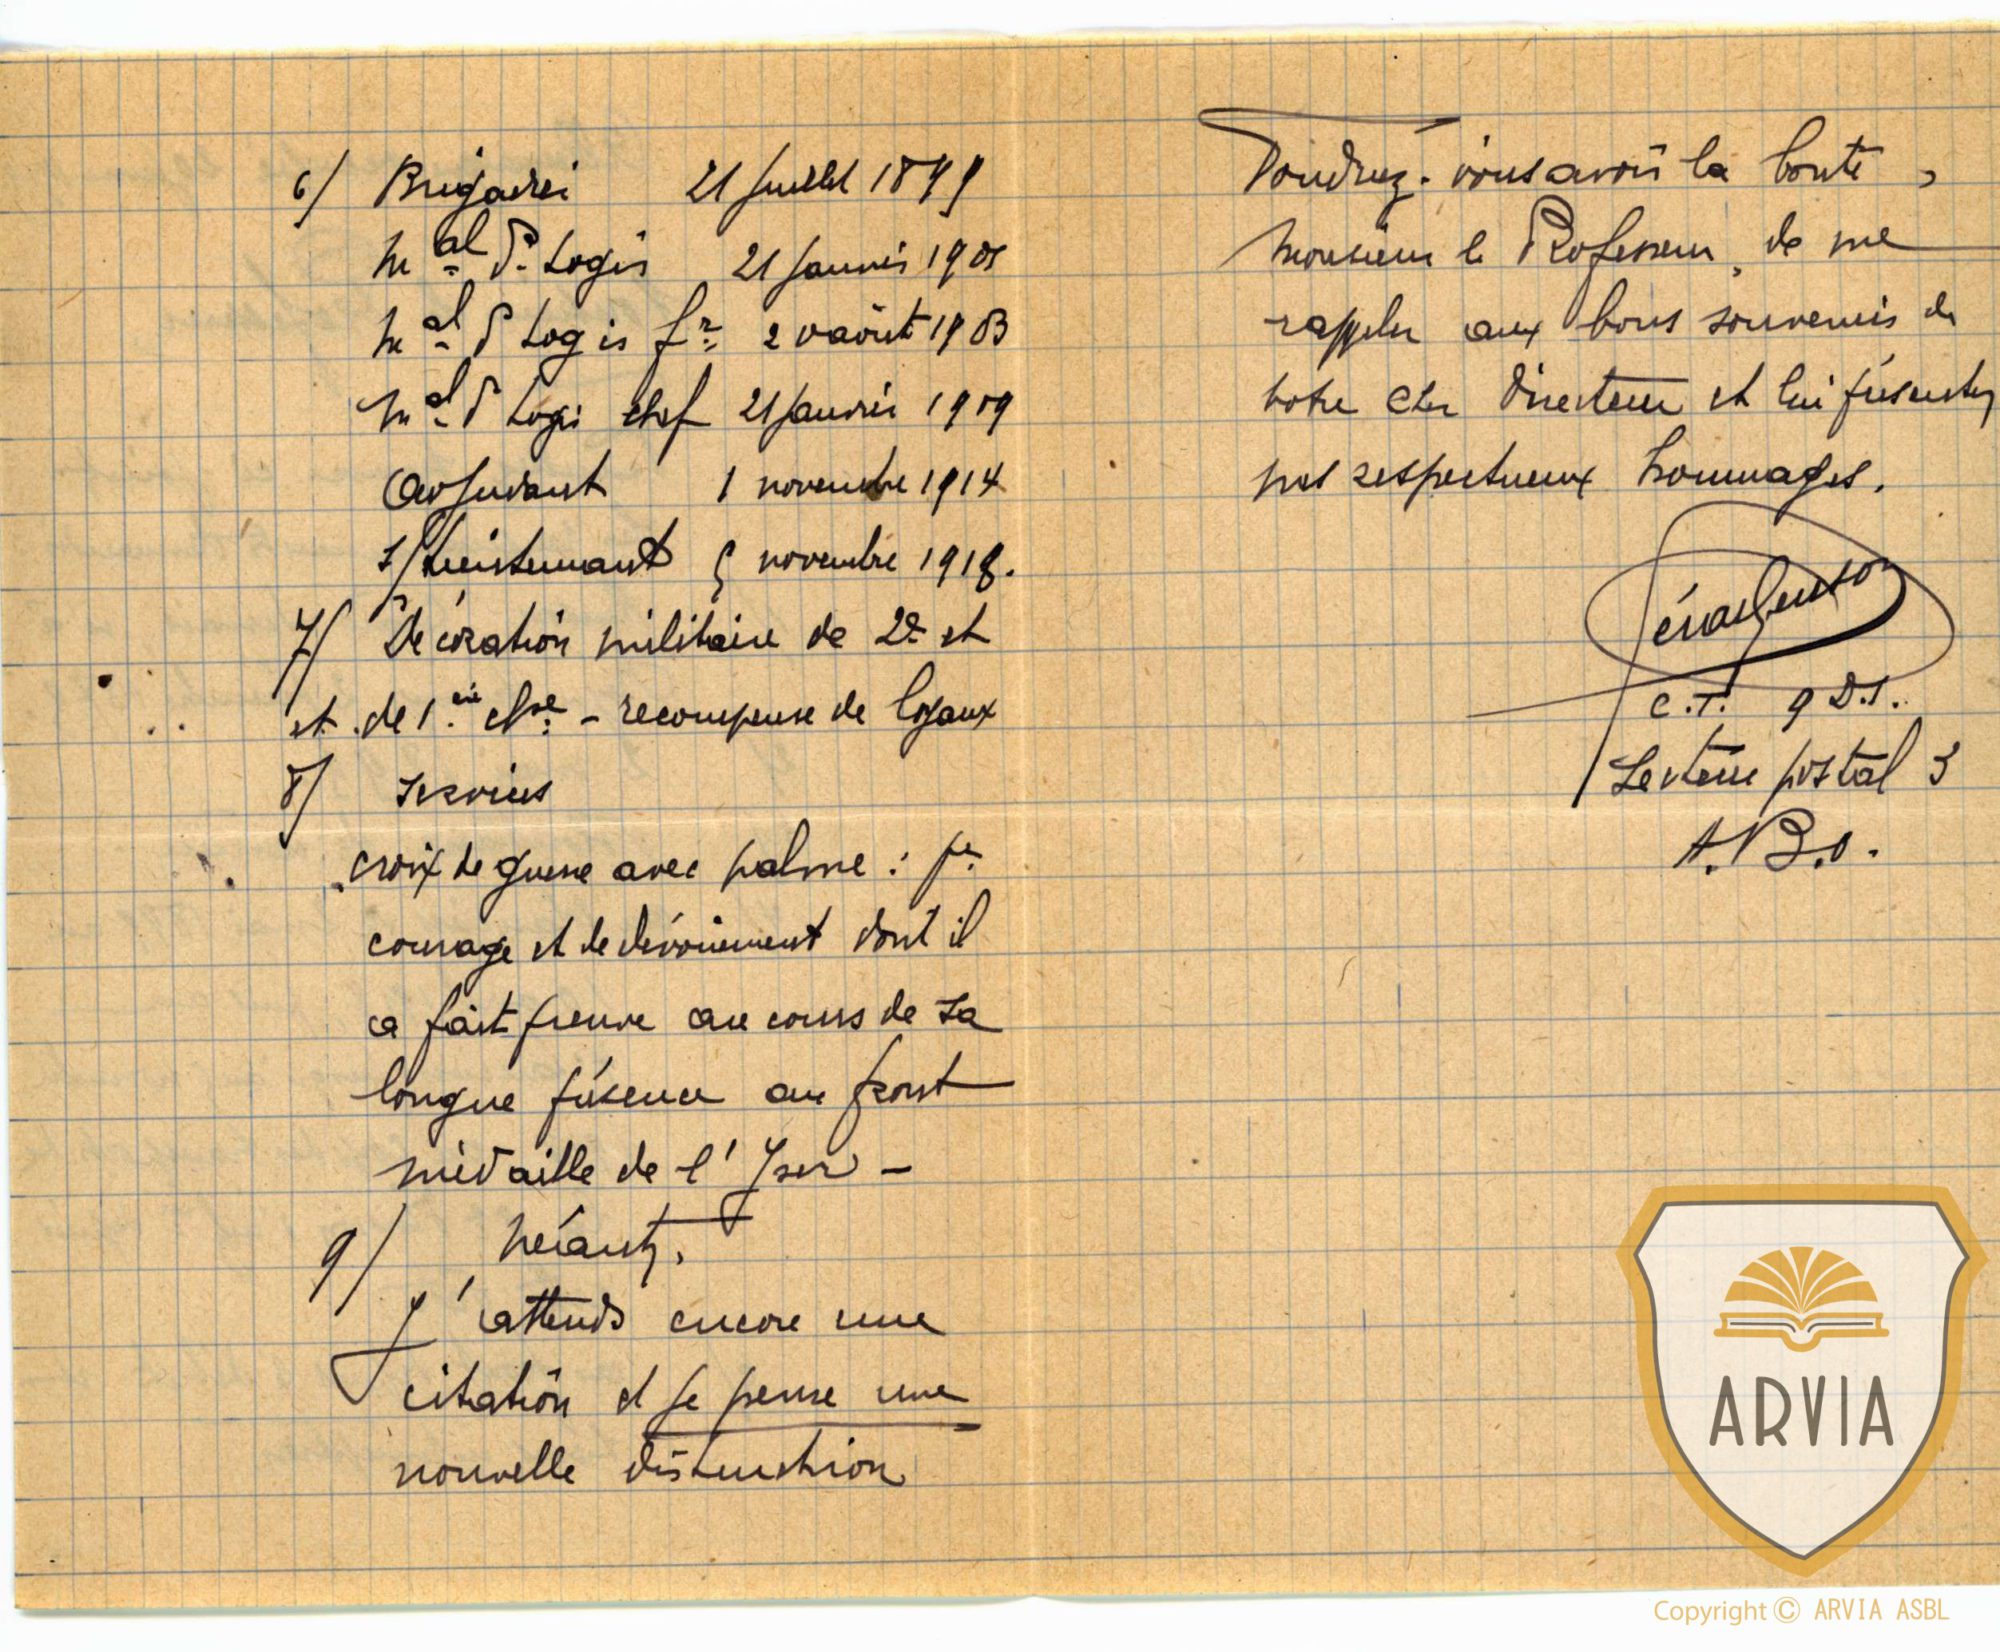 6/ Brigadier 21 Juillet 1899
Mal d. Logis 21 Janvier 1901
Mal d Logis fr 20 août 1903
Mal d Logis chef 21 Janvier 1909
Adjudant 1 novembre 1914
S/Lieutenant 5 novembre 1918.
7/ Décoration militaire de 2e et
et de 1.ère clse - recompense de loyaux
8/ services
croix de guerre avec palme : pr
courage et de dévouement dont il
a fait preuve au cours de sa
longue présence au front
médaille de l'Yser -
9/ Néant.
J'attends encore une
citation et je pense une
nouvelle distinction
Voudriez-vous avoir la bonté,
Monsieur le Professeur, de me
rappeler aux bons souvenirs de
notre cher Directeur et lui présenter
mes respectueux hommages.
C.T. 9 D.I.
Secteur postal 3
A.B.O.
ARVIA
Copyright © ARVIA ASBL